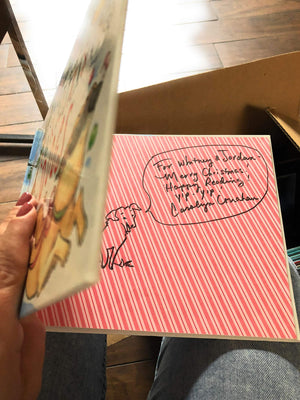 For Whitney & Jordan-
Merry Christmas,
Happy Reading,
Yip Yip!
Carolyn Conahan